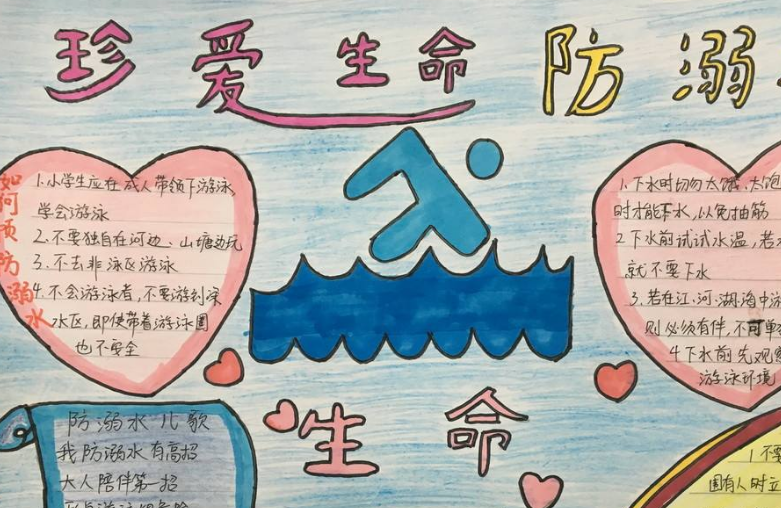 珍爱生命 防溺
如何预防溺水
1.小学生应在成人带领下游泳,
学会游泳
2.不要独自在河边、山塘边玩
3.不去非泳区游泳
4.不会游泳者,不要游到深
水区,即使带着游泳圈
也不安全
1.下水时切勿太饿、太饱
时才能下水,以免抽筋
2下水前试试水温,若
就不要下水
3.若在江·河·湖·海中游
则必须有伴,不可单
4下水前先观
游泳环境
生命
防溺水儿歌
我防溺水有高招
大人陪伴第一招
1不要
围有人时立